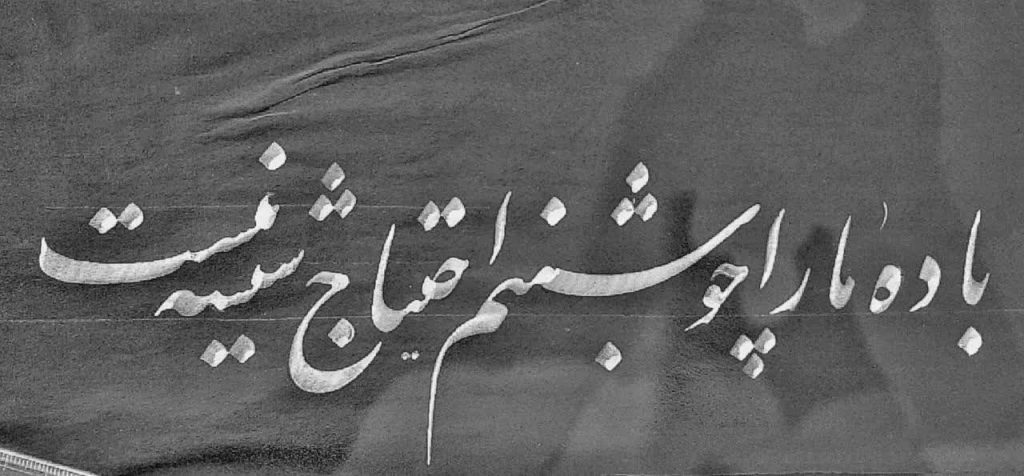 بادهٔ ما را چو شبنم احتیاج شیشه نیست